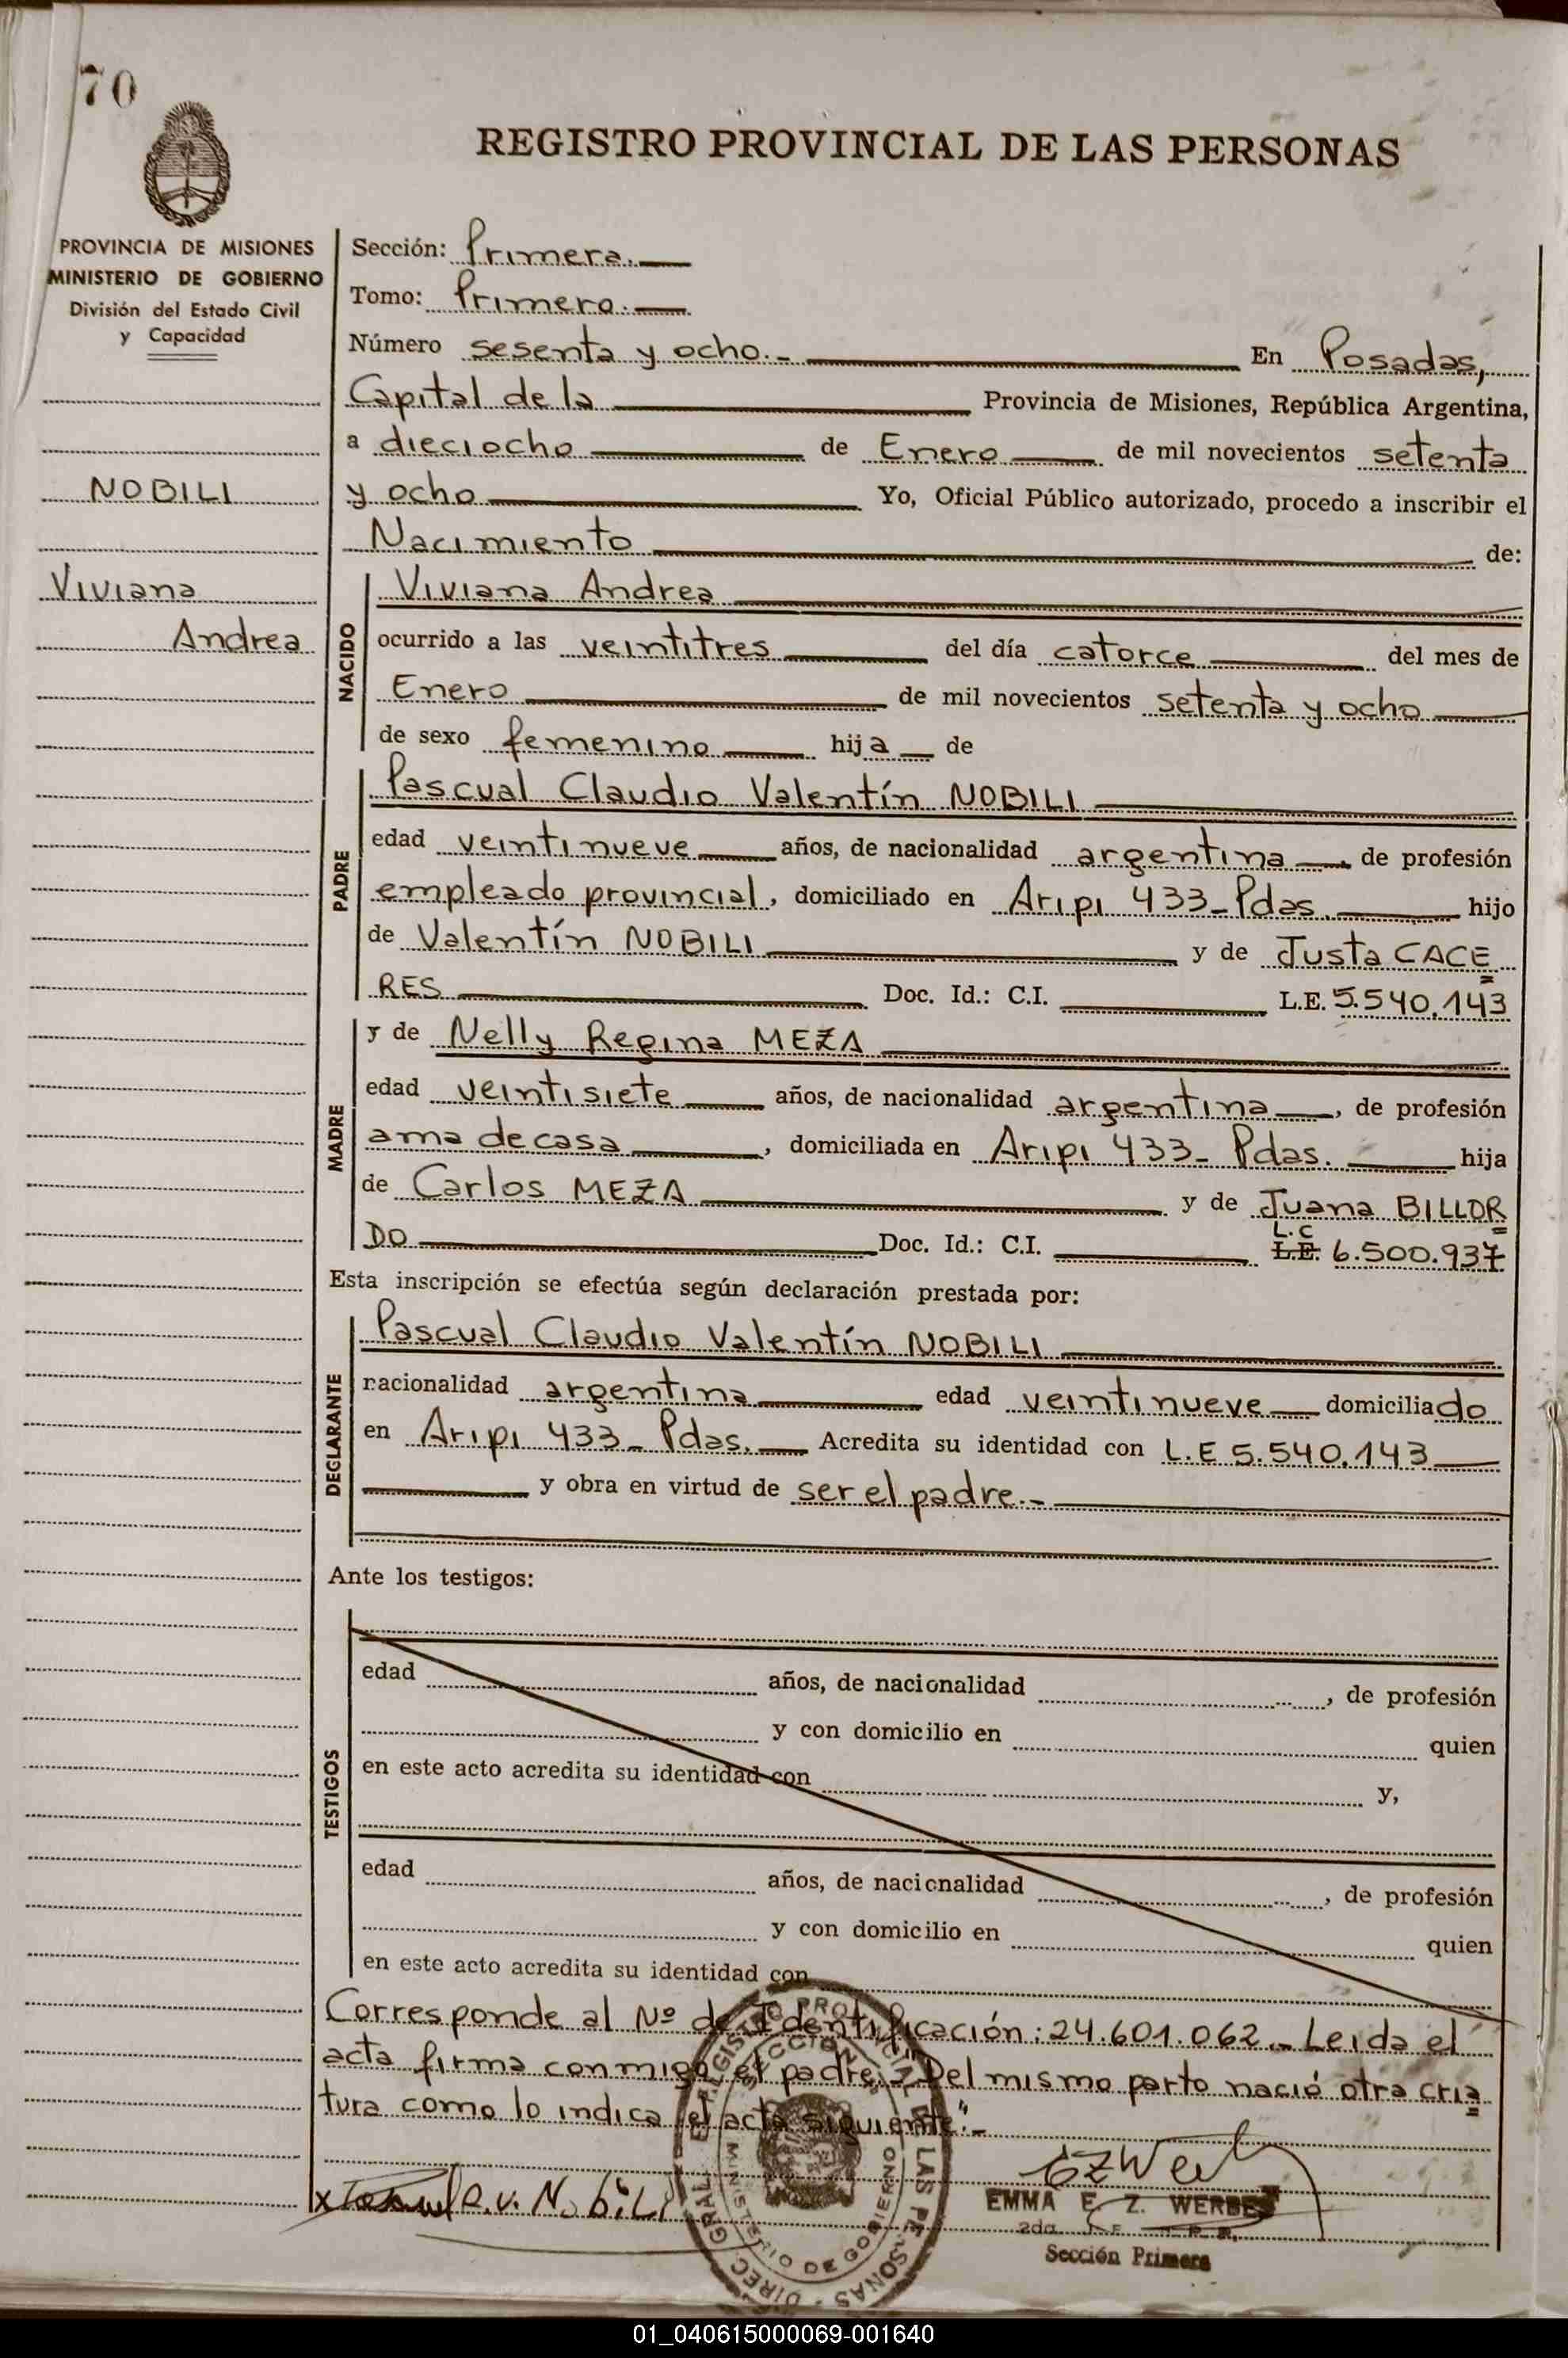 70
REGISTRO PROVINCIAL DE LAS PERSONAS
PROVINCIA DE MISIONES
MINISTERIO DE GOBIERNO
División del Estado Civil
y Capacidad
NOBILI
Viviana
Andrea
Sección: Primera.
Tomo: Primero.
Número sesenta y ocho.- En Posadas,
Capital de la Provincia de Misiones, República Argentina,
a dieciocho de Enero de mil novecientos setenta
y ocho Yo, Oficial Público autorizado, procedo a inscribir el
Nacimiento de:
NACIDO
Viviana Andrea
ocurrido a las veintitres del día catorce del mes de
Enero de mil novecientos setenta y ocho
de sexo femenino hija de
PADRE
Pascual Claudio Valentín NOBILI
edad veintinueve años, de nacionalidad argentina, de profesión
empleado provincial, domiciliado en Aripi 433-Pdas. hijo
de Valentín NOBILI y de Justa CACE=
RES Doc. Id.: C.I. L.E. 5.540.143
MADRE
y de Nelly Regina MEZA
edad veintisiete años, de nacionalidad argentina, de profesión
ama de casa, domiciliada en Aripi 433- Pdas. hija
de Carlos MEZA y de Juana BILLOR=
DO Doc. Id.: C.I. L.C L.E. 6.500.937
Esta inscripción se efectúa según declaración prestada por:
DECLARANTE
Pascual Claudio Valentín NOBILI
nacionalidad argentina edad veintinueve domiciliado
en Aripi 433- Pdas. Acredita su identidad con L.E 5.540.143
y obra en virtud de ser el padre.-
Ante los testigos:
TESTIGOS
edad años, de nacionalidad , de profesión
y con domicilio en quien
en este acto acredita su identidad con y,
edad años, de nacionalidad , de profesión
y con domicilio en quien
en este acto acredita su identidad con
Corresponde al Nº de Identificación: 24.601.062.- Leida el
acta firma conmigo el padre.- "Del mismo parto nació otra cria=
tura como lo indica el acta siguiente".-
C.V. Nobili
EMMA E. Z. WERBES
2da.
Sección Primera
DIREC. GRAL. REGISTRO PROVINCIAL DE LAS PERSONAS
SECCION
MINISTERIO DE GOBIERNO
01_040615000069-001640